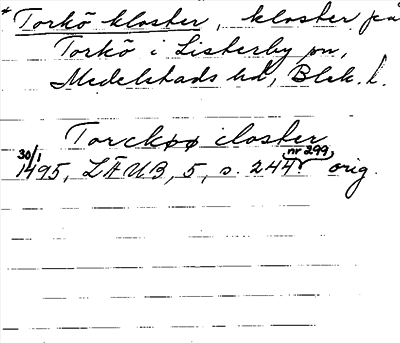 * Torkö kloster, kloster på
Torkö i Listerby sn,
Medelstads hd, Blek. l.
Torckøø closter
30/1 nr 299
1495, LÄUB, 5, s. 244 orig.